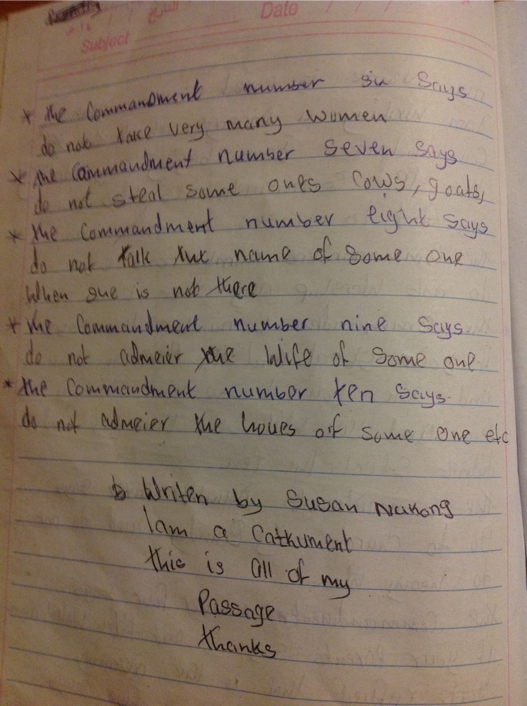 Date
Subject
* the Commandment number six Says
do not take very many women
* the Commandment number seven says
do not steal some ones cows, goats,
* the Commandment number eight says
do not talk the name of some one
When she is not there
* the Commandment number nine says
do not admeier the wife of some one
* the Commandment number ten says.
do not admeier the houes of some one etc
Writen by Susan Nakong
I am a Cathument
this is all of my
Passage
thanks